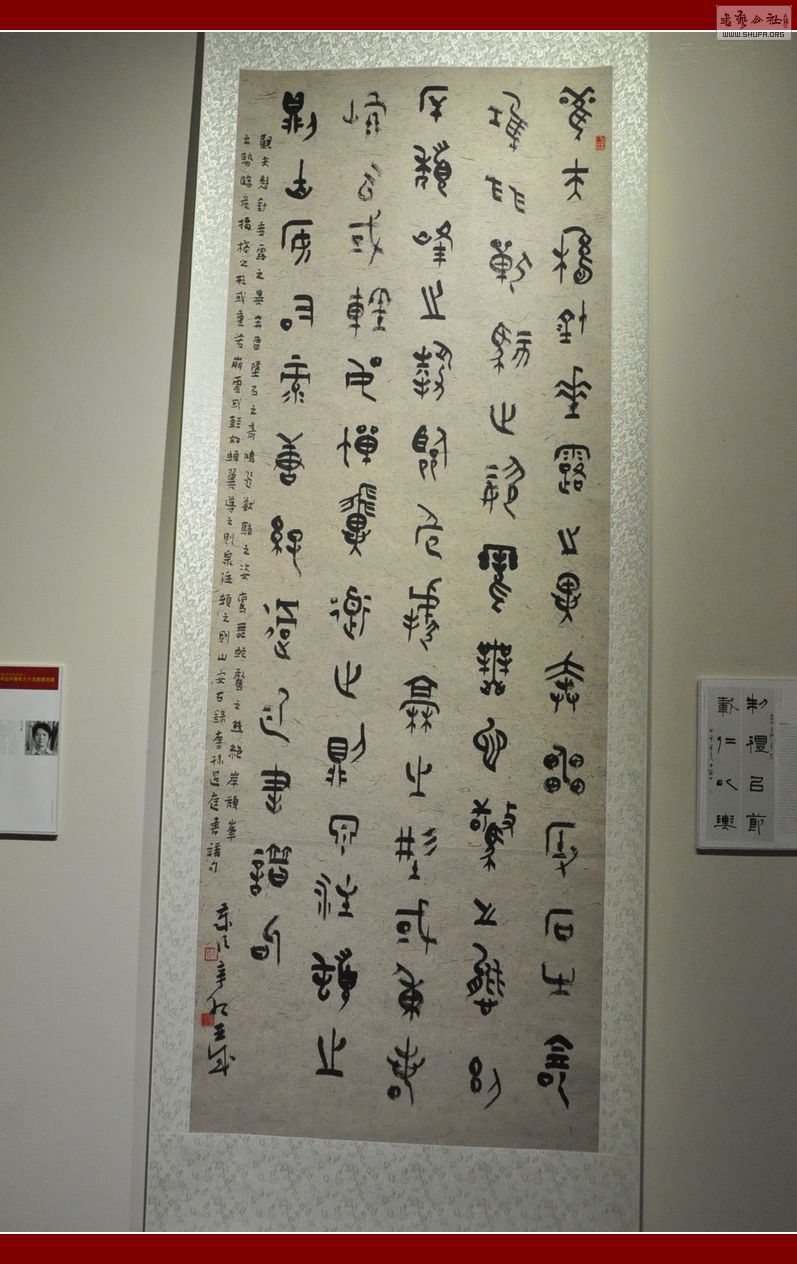 書藝公社
WWW.SHUFA.ORG
觀夫懸針垂露之異奔雷墜石之奇
鴻飛獸駭之姿鸞舞蛇驚之態絕
岸頹峰之勢臨危據槁之形或重若
崩雲或輕如蟬翼導之則泉注頓之
則山安右录唐孫過庭書譜句
觀夫懸針垂露之異奔雷墜石之奇鴻飛獸駭之姿鸞舞蛇驚之態絕岸頹峯
之勢臨危據槁之形或重若崩雲或輕如蟬翼導之則泉注頓之則山安右錄唐孫過庭書譜句
辛卯
制禮㠯節
載仁以輿